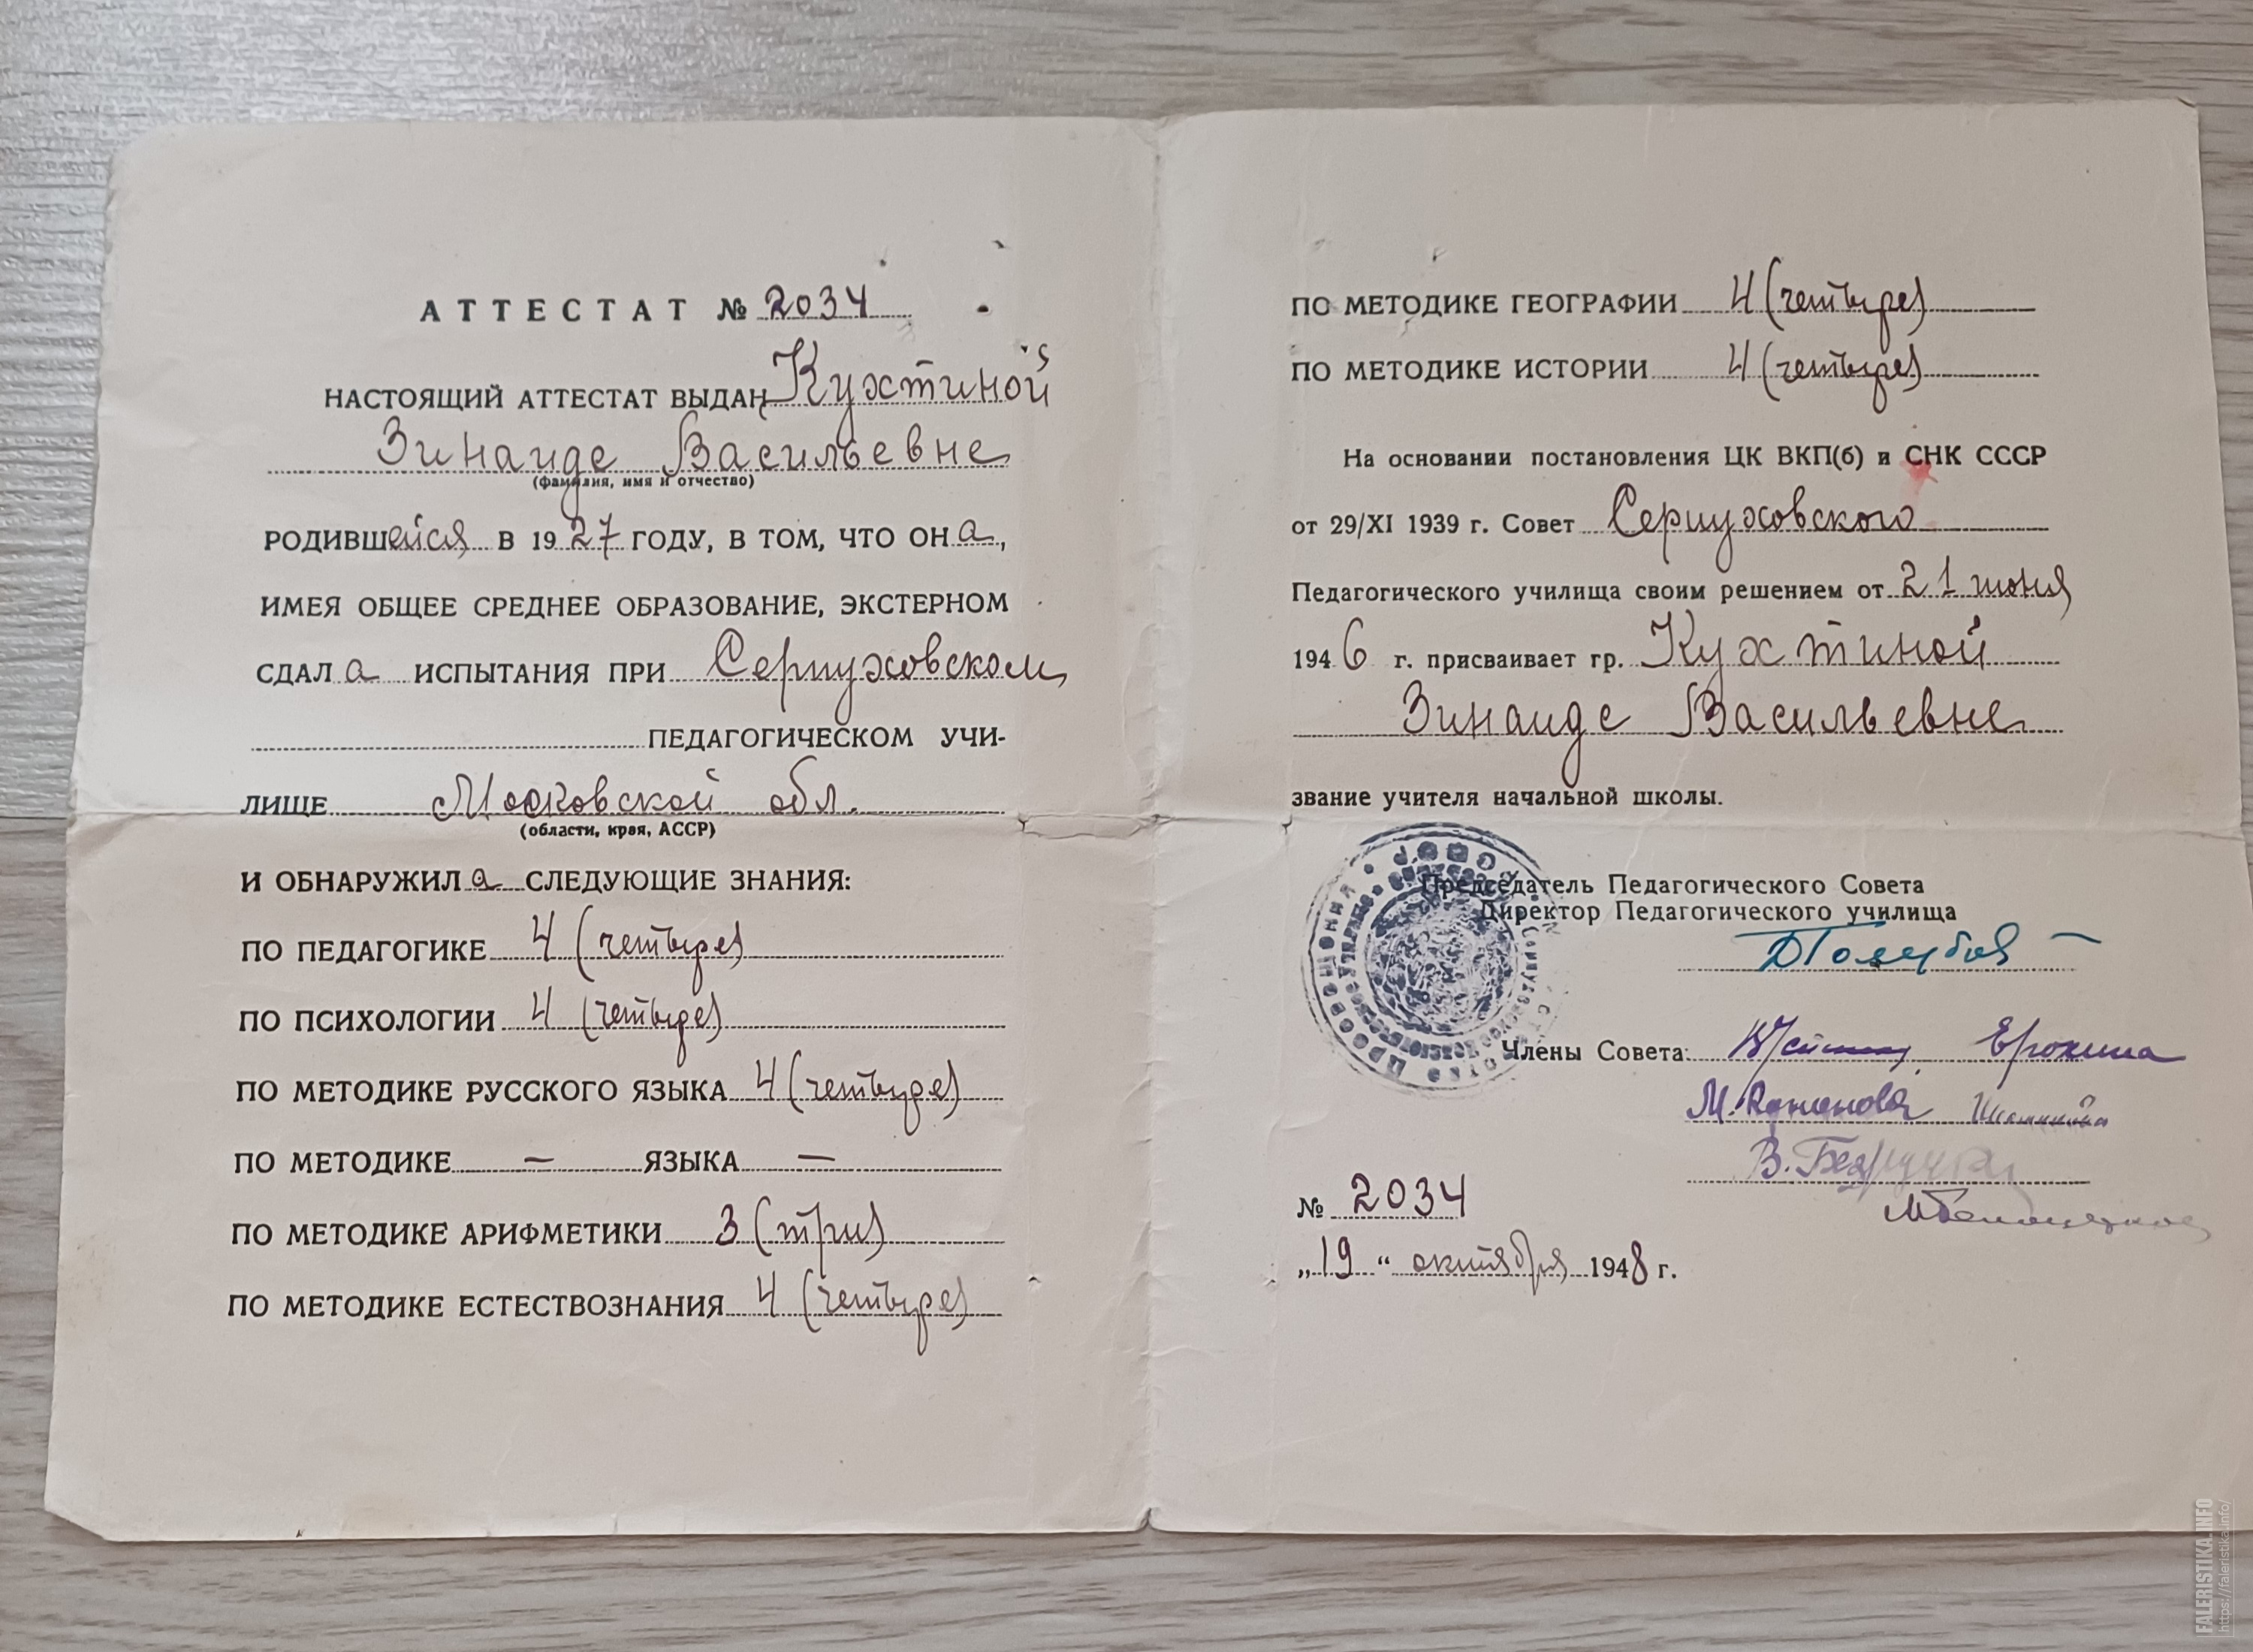 АТТЕСТАТ № 2034
НАСТОЯЩИЙ АТТЕСТАТ ВЫДАН Кухтиной
Зинаиде Васильевне
(фамилия, имя и отчество)
РОДИВШейся В 1927 ГОДУ, В ТОМ, ЧТО ОНа,
ИМЕЯ ОБЩЕЕ СРЕДНЕЕ ОБРАЗОВАНИЕ, ЭКСТЕРНОМ
СДАЛа ИСПЫТАНИЯ ПРИ Серпуховском
ПЕДАГОГИЧЕСКОМ УЧИ-
ЛИЩЕ Московской обл.
(области, края, АССР)
И ОБНАРУЖИЛа СЛЕДУЮЩИЕ ЗНАНИЯ:
ПО ПЕДАГОГИКЕ 4 (четыре)
ПО ПСИХОЛОГИИ 4 (четыре)
ПО МЕТОДИКЕ РУССКОГО ЯЗЫКА 4 (четыре)
ПО МЕТОДИКЕ — ЯЗЫКА —
ПО МЕТОДИКЕ АРИФМЕТИКИ 3 (три)
ПО МЕТОДИКЕ ЕСТЕСТВОЗНАНИЯ 4 (четыре)
ПО МЕТОДИКЕ ГЕОГРАФИИ 4 (четыре)
ПО МЕТОДИКЕ ИСТОРИИ 4 (четыре)
На основании постановления ЦК ВКП(б) и СНК СССР
от 29/XI 1939 г. Совет Серпуховского
Педагогического училища своим решением от 21 июня
1946 г. присваивает гр. Кухтиной
Зинаиде Васильевне
звание учителя начальной школы.
Председатель Педагогического Совета
Директор Педагогического училища
Члены Совета: Ерохина
М.
В.
№ 2034
„19“ октября 1948 г.
FALERISTIKA.INFO
https://faleristika.info/